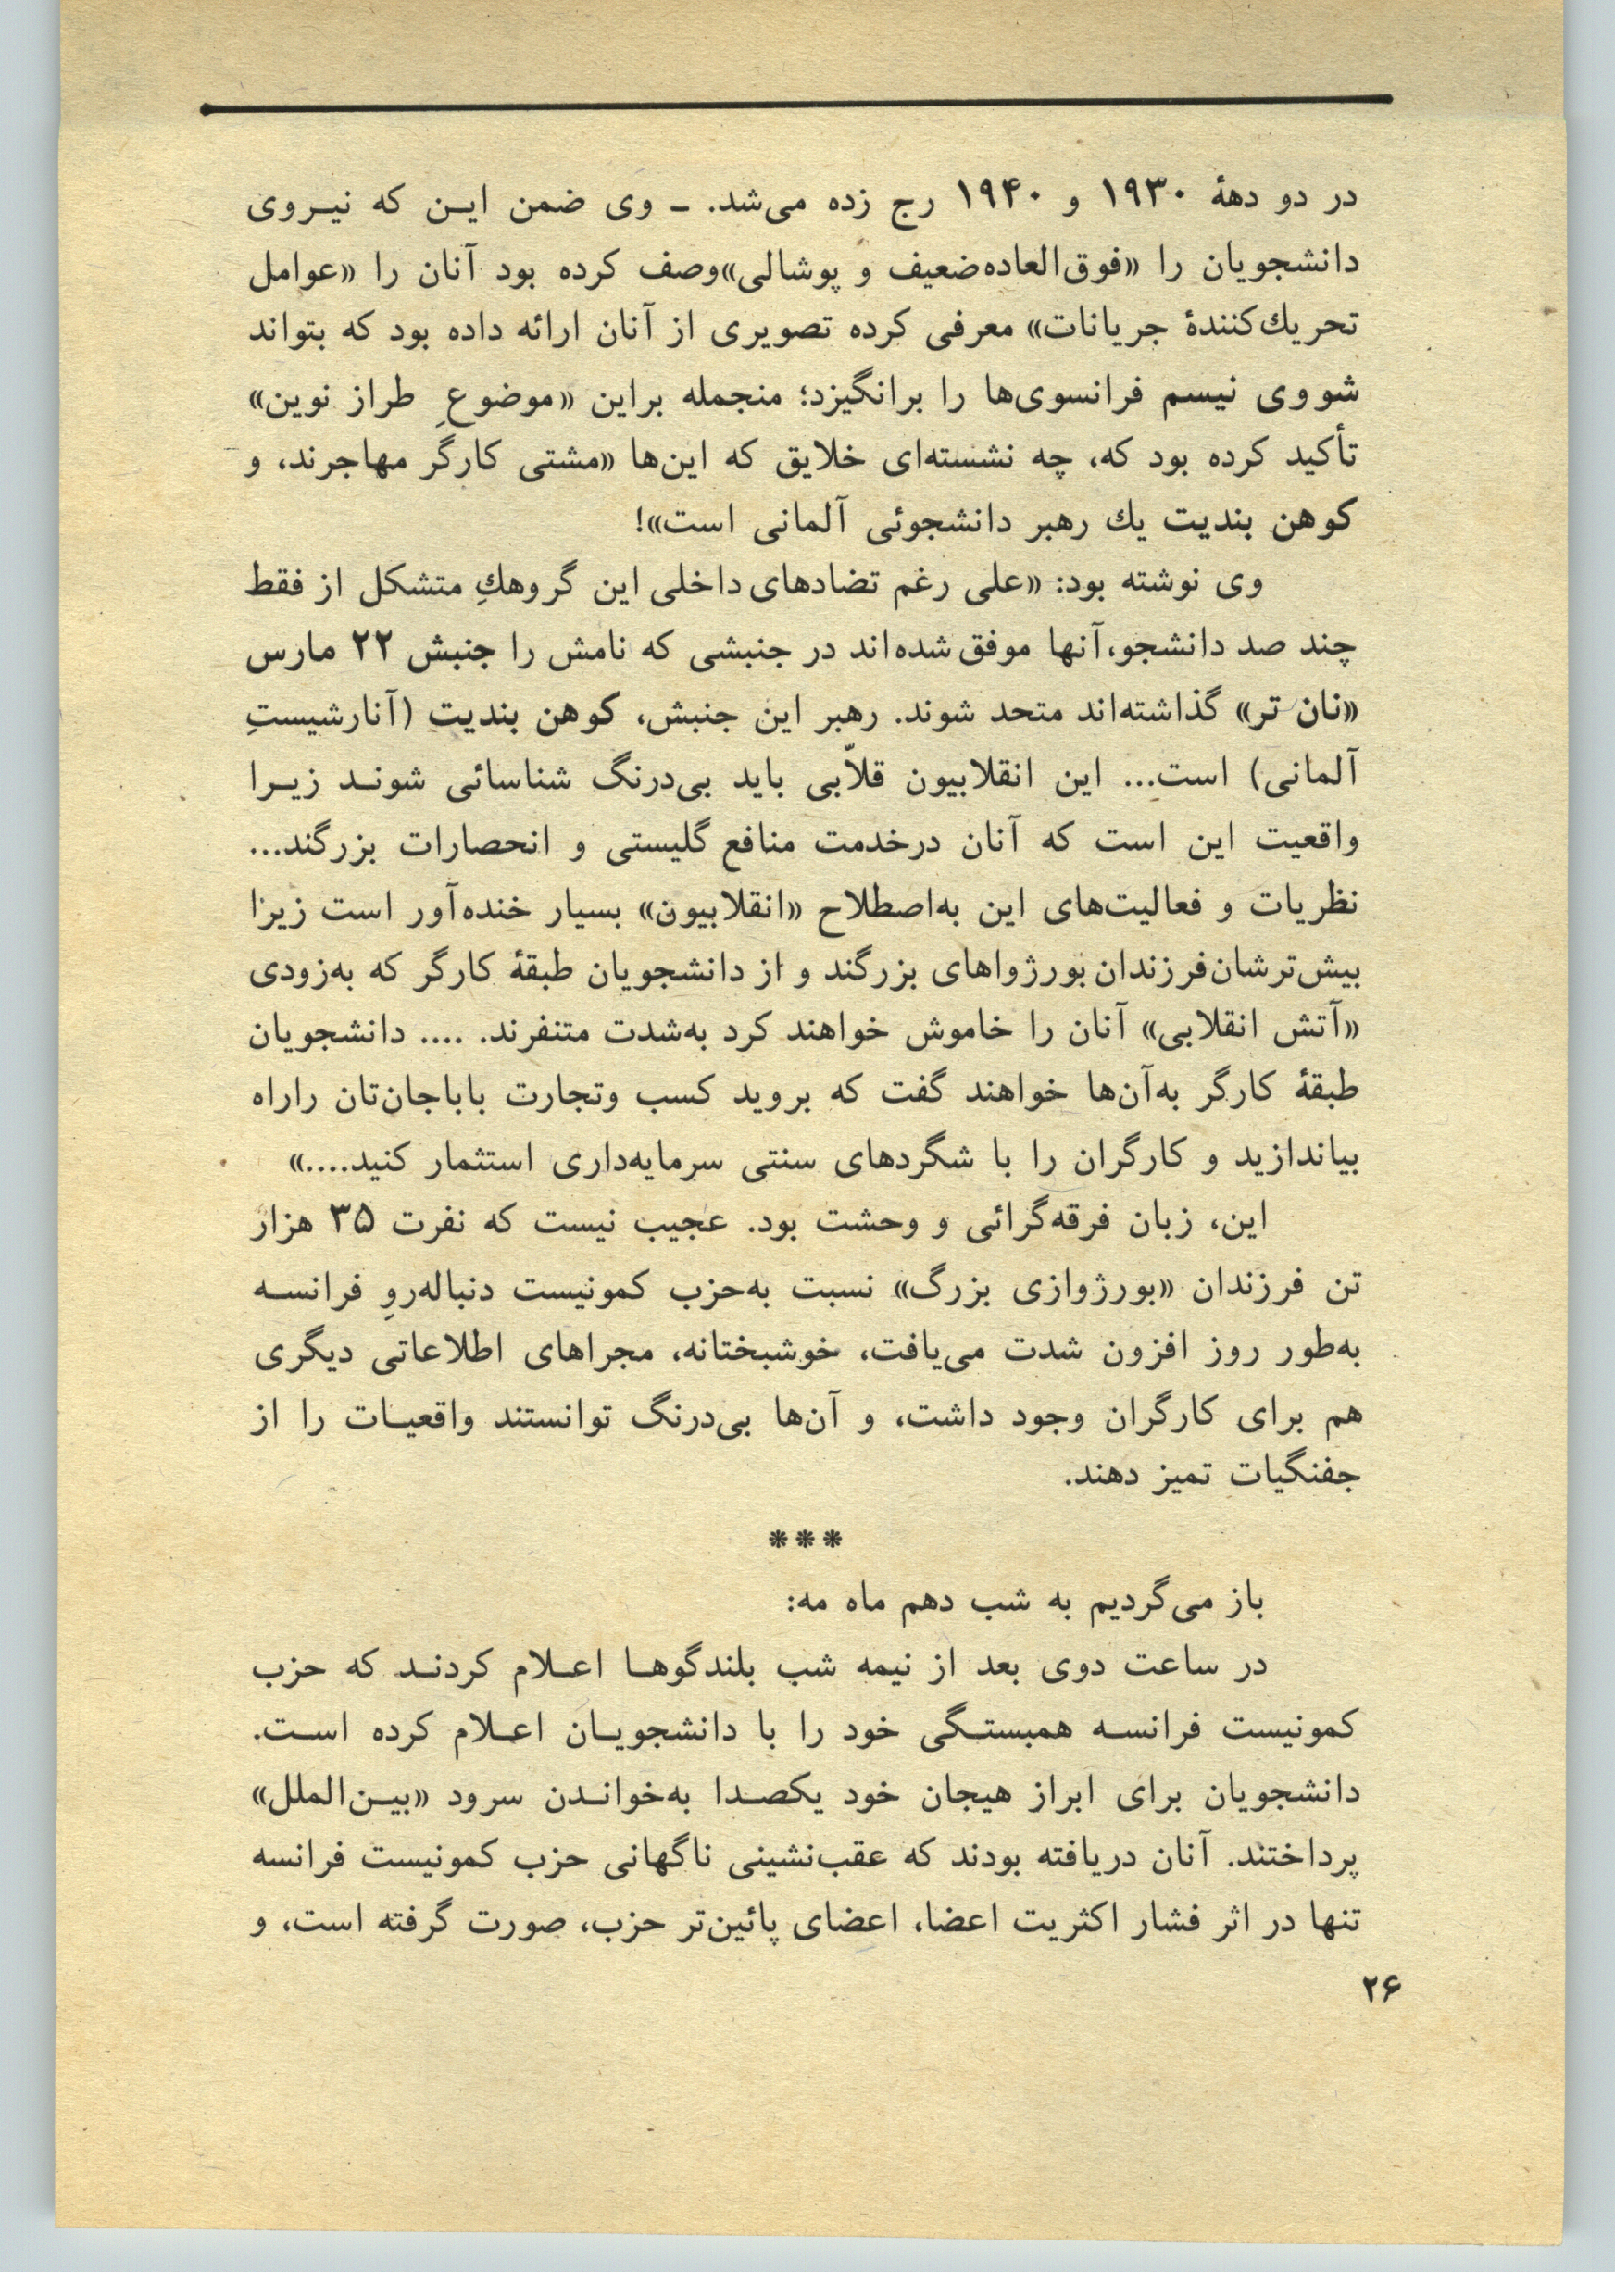 در دو دههٔ ۱۹۳۰ و ۱۹۴۰ رج زده می‌شد. ـ وی ضمن ایـن که نیـروی
دانشجویان را «فوق‌العاده ضعیف و پوشالی» وصف کرده بود آنان را «عوامل
تحریك‌کنندهٔ جریانات» معرفی کرده تصویری از آنان ارائه داده بود که بتواند
شووی نیسم فرانسوی‌ها را برانگیزد؛ منجمله براین «موضوعِ طراز نوین»
تأکید کرده بود که، چه نشسته‌ای خلایق که این‌ها «مشتی کارگر مهاجرند، و
کوهن بندیت یك رهبر دانشجوئی آلمانی است»!
وی نوشته بود: «علی رغم تضادهای داخلی این گروهكِ متشکل از فقط
چند صد دانشجو، آنها موفق شده‌اند در جنبشی که نامش را جنبش ۲۲ مارس
«نان تر» گذاشته‌اند متحد شوند. رهبر این جنبش، کوهن بندیت (آنارشیستِ
آلمانی) است... این انقلابیون قلاّبی باید بی‌درنگ شناسائی شونـد زیـرا
واقعیت این است که آنان درخدمت منافع گلیستی و انحصارات بزرگند...
نظریات و فعالیت‌های این به‌اصطلاح «انقلابیون» بسیار خنده‌آور است زیرا
بیش‌ترشان فرزندان بورژواهای بزرگند و از دانشجویان طبقهٔ کارگر که به‌زودی
«آتش انقلابی» آنان را خاموش خواهند کرد به‌شدت متنفرند. .... دانشجویان
طبقهٔ کارگر به‌آن‌ها خواهند گفت که بروید کسب وتجارت باباجان‌تان راراه
بیاندازید و کارگران را با شگردهای سنتی سرمایه‌داری استثمار کنید....»
این، زبان فرقه‌گرائی و وحشت بود. عجیب نیست که نفرت ۳۵ هزار
تن فرزندان «بورژوازی بزرگ» نسبت به‌حزب کمونیست دنباله‌روِ فرانسـه
به‌طور روز افزون شدت می‌یافت، خوشبختانه، مجراهای اطلاعاتی دیگری
هم برای کارگران وجود داشت، و آن‌ها بی‌درنگ توانستند واقعیـات را از
جفنگیات تمیز دهند.
***
باز می‌گردیم به شب دهم ماه مه:
در ساعت دوی بعد از نیمه شب بلندگوهـا اعـلام کردنـد که حزب
کمونیست فرانسـه همبستـگی خود را با دانشجویـان اعـلام کرده اسـت.
دانشجویان برای ابراز هیجان خود یکصـدا به‌خوانـدن سرود «بیـن‌الملل»
پرداختند. آنان دریافته بودند که عقب‌نشینی ناگهانی حزب کمونیست فرانسه
تنها در اثر فشار اکثریت اعضا، اعضای پائین‌تر حزب، صورت گرفته است، و
۲۶